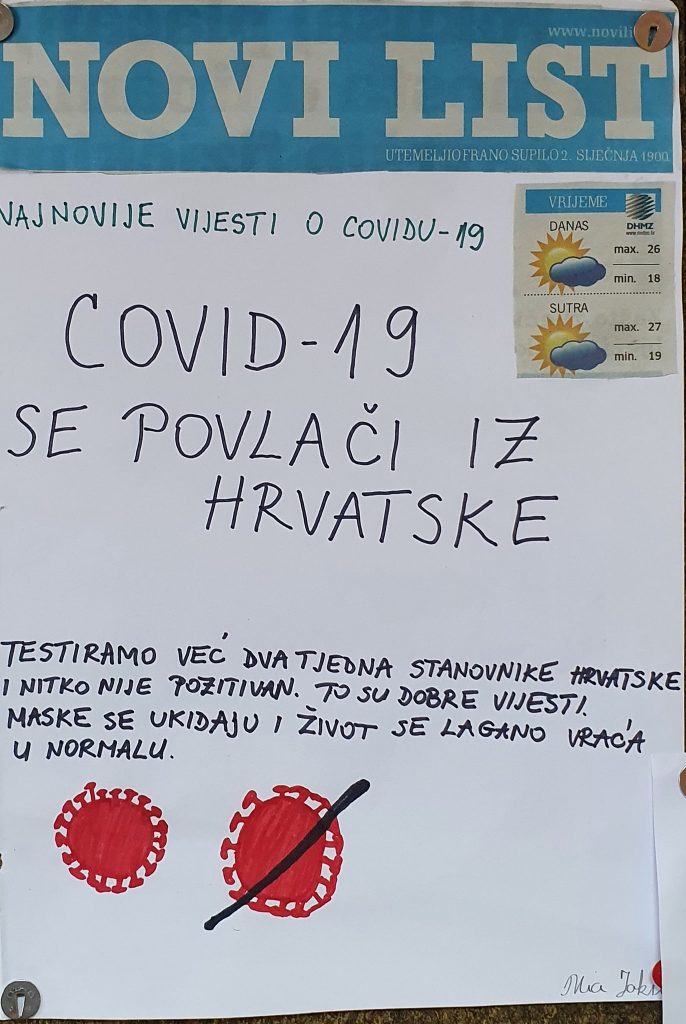 NOVI LIST
UTEMELJIO FRANO SUPILO 2. SIJEČNJA 1900.
NAJNOVIJE VIJESTI O COVIDU-19
VRIJEME
DHMZ
DANAS
max. 26
min. 18
SUTRA
max. 27
min. 19
COVID-19
SE POVLAČI IZ
HRVATSKE
TESTIRAMO VEĆ DVA TJEDNA STANOVNIKE HRVATSKE
I NITKO NIJE POZITIVAN. TO SU DOBRE VIJESTI.
MASKE SE UKIDAJU I ŽIVOT SE LAGANO VRAĆA
U NORMALU.